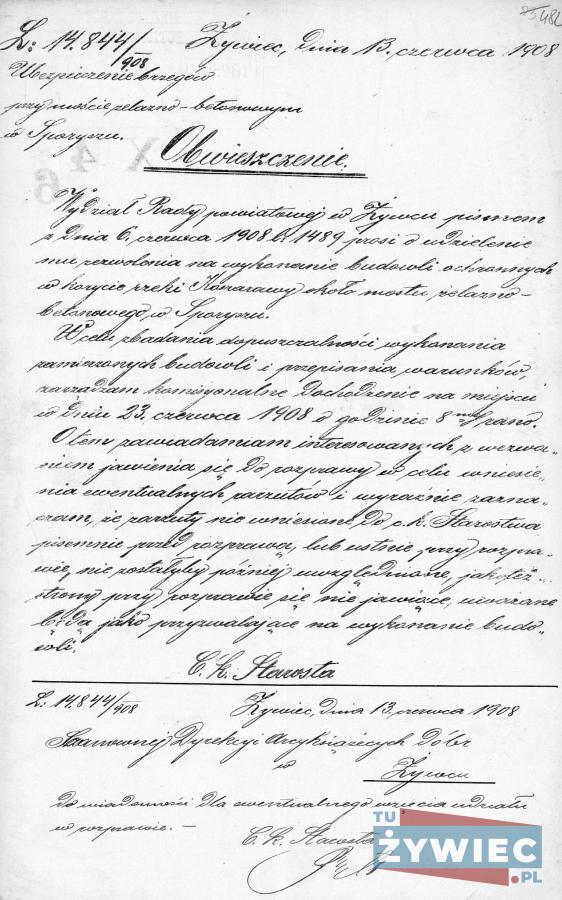 85/482
L: 14.844/908 Żywiec, dnia 13. czerwca 1908
Ubezpieczenie brzegów
przy moście żelazno-betonowym
w Sporyszu.
Obwieszczenie.
Wydział Rady powiatowej w Żywcu pismem
z dnia 6. czerwca 1908 l. 1489 prosi o udzielenie
mu zezwolenia na wykonanie budowli ochronnych
w korycie rzeki Koszarawy około mostu żelazno-
betonowego w Sporyszu.
W celu zbadania dopuszczalności wykonania
zamierzonych budowli i przepisania warunków,
zarządzam komisyonalne dochodzenie na miejscu
w dniu 23. czerwca 1908 o godzinie 8 mej rano.
O tem zawiadamiam interesowanych z wezwa-
niem jawienia się do rozprawy w celu wniesie-
nia ewentualnych zarzutów i wyraźnie zazna-
czam, że zarzuty nie wniesione do c. k. Starostwa
pisemnie przed rozprawą, lub ustnie przy rozpra-
wie, nie zostałyby później uwzględnione, jakoteż
strony przy rozprawie się nie jawiące, uważane
będą jako przyzwalające na wykonanie budo-
wli.
C. k. Starosta
L: 14.844/908 Żywiec, dnia 13. czerwca 1908
Szanownej Dyrekcyi Arcyksiążęcych dóbr
w
Żywcu
do wiadomości dla ewentualnego wzięcia udziału
w rozprawie. —
C. k. Starosta
TU
ŻYWIEC
.PL